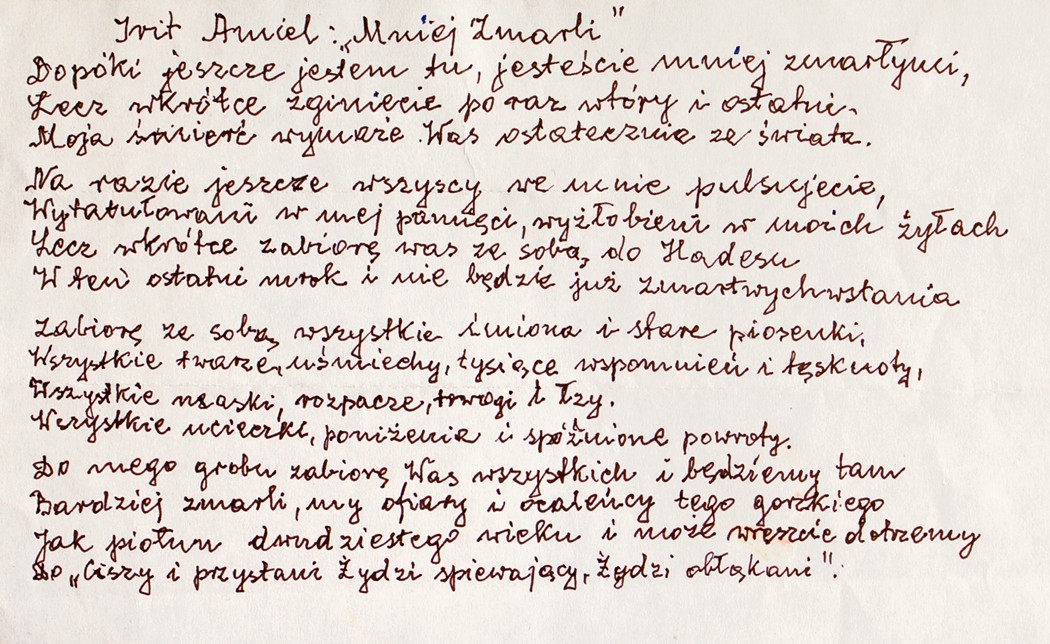 Irit Amiel: „Mniej Zmarli"
Dopóki jeszcze jestem tu, jesteście mniej zmarłymi,
Lecz wkrótce zginiecie po raz wtóry i ostatni.
Moja śmierć wymaże Was ostatecznie ze świata.
Na razie jeszcze wszyscy we mnie pulsujecie,
Wytatuowani w mej pamięci, wyżłobieni w moich żyłach
Lecz wkrótce zabiorę was ze sobą do Hadesu
W ten ostatni mrok i nie będzie już zmartwychwstania
Zabiorę ze sobą wszystkie imiona i stare piosenki,
Wszystkie twarze, uśmiechy, tysiące wspomnień i tęsknoty,
Wszystkie maski, rozpacze, trwogi i łzy.
Wszystkie ucieczki, poniżenia i spóźnione powroty.
Do mego grobu zabiorę Was wszystkich i będziemy tam
Bardziej zmarli, my ofiary i ocaleńcy tego gorzkiego
Jak piołun dwudziestego wieku i może wreszcie dotrzemy
Do „Ciszy i przystani Żydzi śpiewający, Żydzi obłąkani".